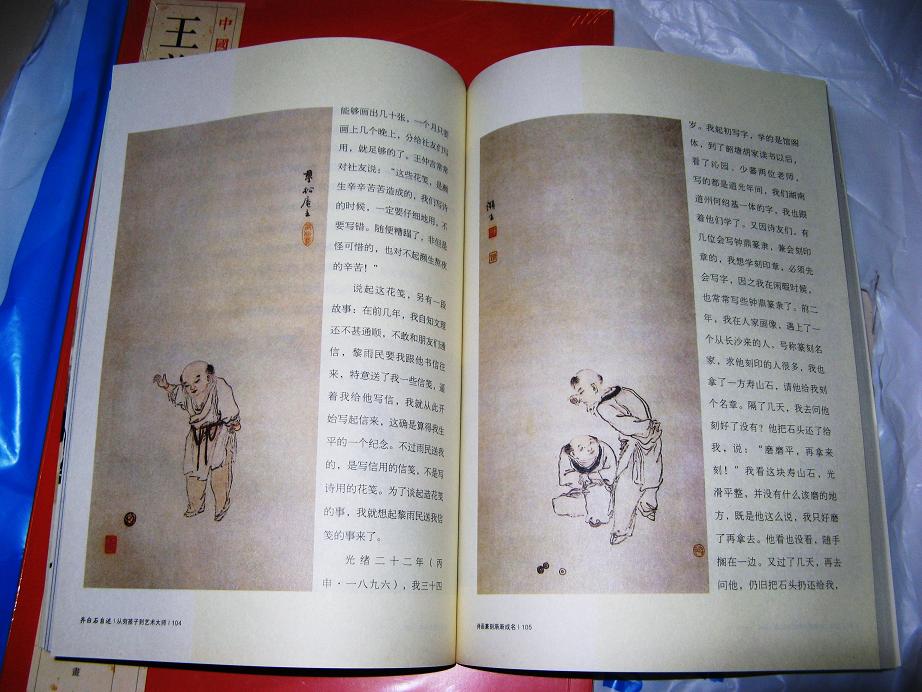 中國
王
能够画出几十张，一个月只要
画上几个晚上，分给社友们写
用，就足够的了。王仲言常常
对社友说：“这些花笺，是濒
生辛辛苦苦造成的，我们写诗
的时候，一定要仔细地用，不
要写错。随便糟蹋了，非但是
怪可惜的，也对不起濒生熬夜
的辛苦！”
说起这花笺，另有一段
故事：在前几年，我自知文理
还不甚通顺，不敢和朋友们通
信，黎雨民要我跟他书信往
来，特意送了我一些信笺，逼
着我给他写信，我就从此开
始写起信来，这确是算得我生
平的一个纪念。不过雨民送我
的，是写信用的信笺，不是写
诗用的花笺。为了谈起造花笺
的事，我就想起黎雨民送我信
笺的事来了。
光绪二十二年（丙
申·一八九六），我三十四
齐白石自述 | 从穷孩子到艺术大师 | 104
岁。我起初写字，学的是馆阁
体，到了韶塘胡家读书以后，
看了沁园、少蕃两位老师，
写的都是道光年间，我们湖南
道州何绍基一体的字，我也跟
着他们学了。又因诗友们，有
几位会写钟鼎篆隶，兼会刻印
章的，我想学刻印章，必须先
会写字，因之我在闲暇时候，
也常常写些钟鼎篆隶了。前二
年，我在人家画像，遇上了一
个从长沙来的人，号称篆刻名
家，求他刻印的人很多，我也
拿了一方寿山石，请他给我刻
个名章。隔了几天，我去问他
刻好了没有？他把石头还了给
我，说：“磨磨平，再拿来
刻！”我看这块寿山石，光
滑平整，并没有什么该磨的地
方，既是他这么说，我只好磨
了再拿去。他看也没看，随手
搁在一边。又过了几天，再去
问他，仍旧把石头扔还给我，
诗画篆刻渐渐成名 | 105
畫